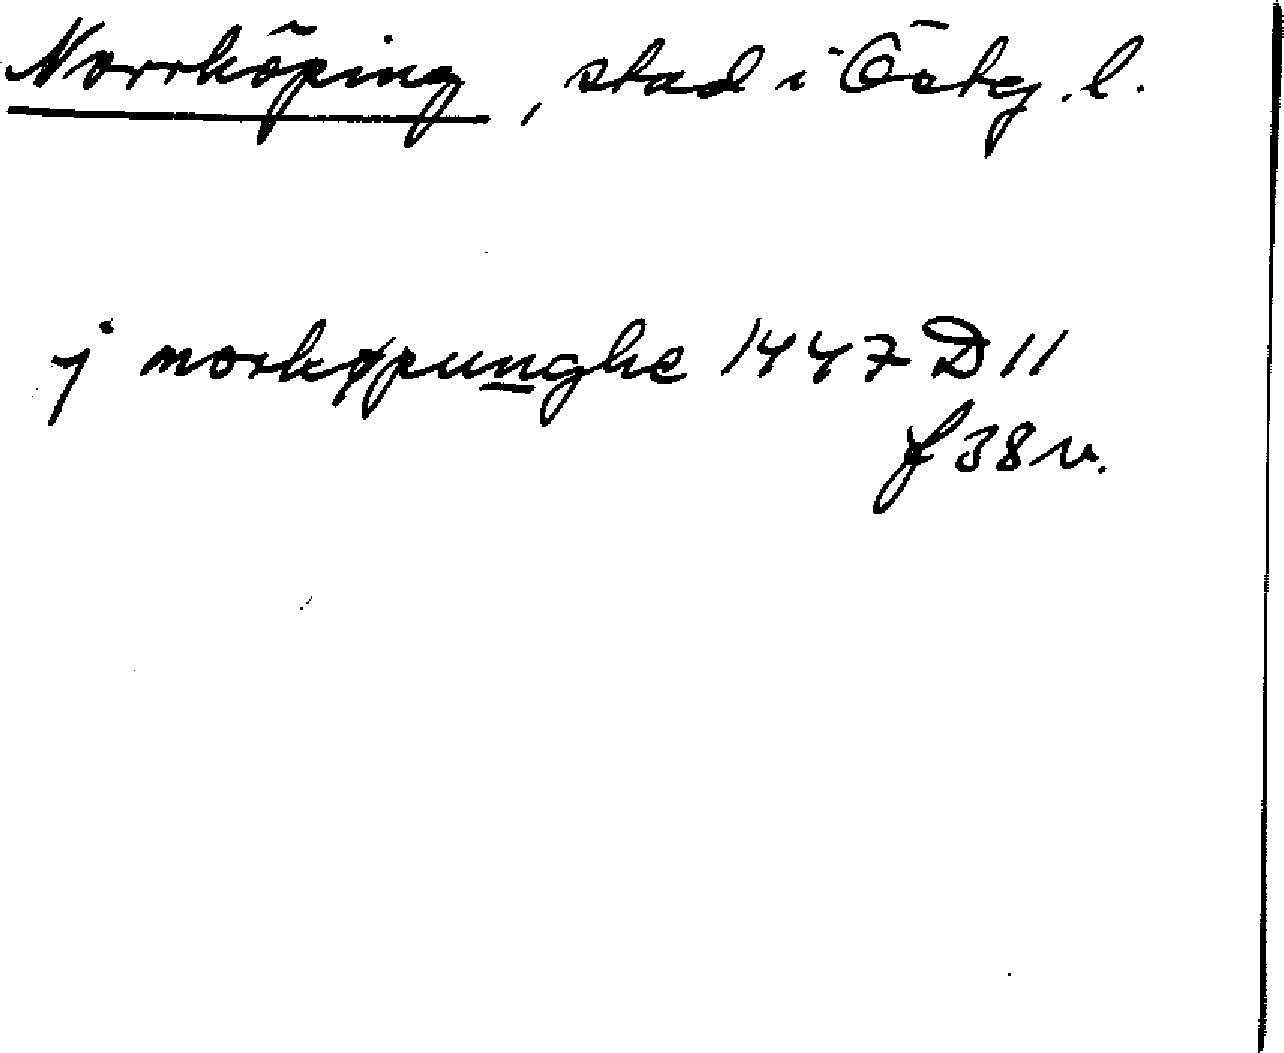 Norrköping, stad i Östg. l.
j norkøpunghe 1447 D 11
f 38 v.